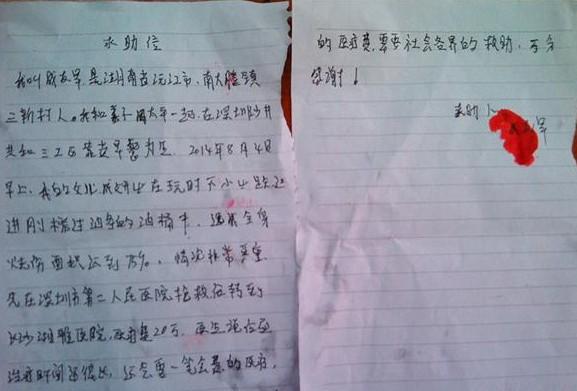 求助信
我叫成友军是湖南省沅江市,南大膳镇
三新村人。我和妻子周太平一起在深圳沙井
共和三工区靠卖早餐为生.2014年8月4日
早上,我的女儿成 在玩时不小心跌
进刚榨过油条的油桶中,造成全身
烧伤面积达到75%,情况非常严重
先在深圳市第二人民医院抢救后转到
长沙湘雅医院,医疗费20万.医生说后面
治疗时间还很长,还会要一笔会易的医疗,
的医疗费,需要社会各界的救助,万分
感谢!
求助人
成友军